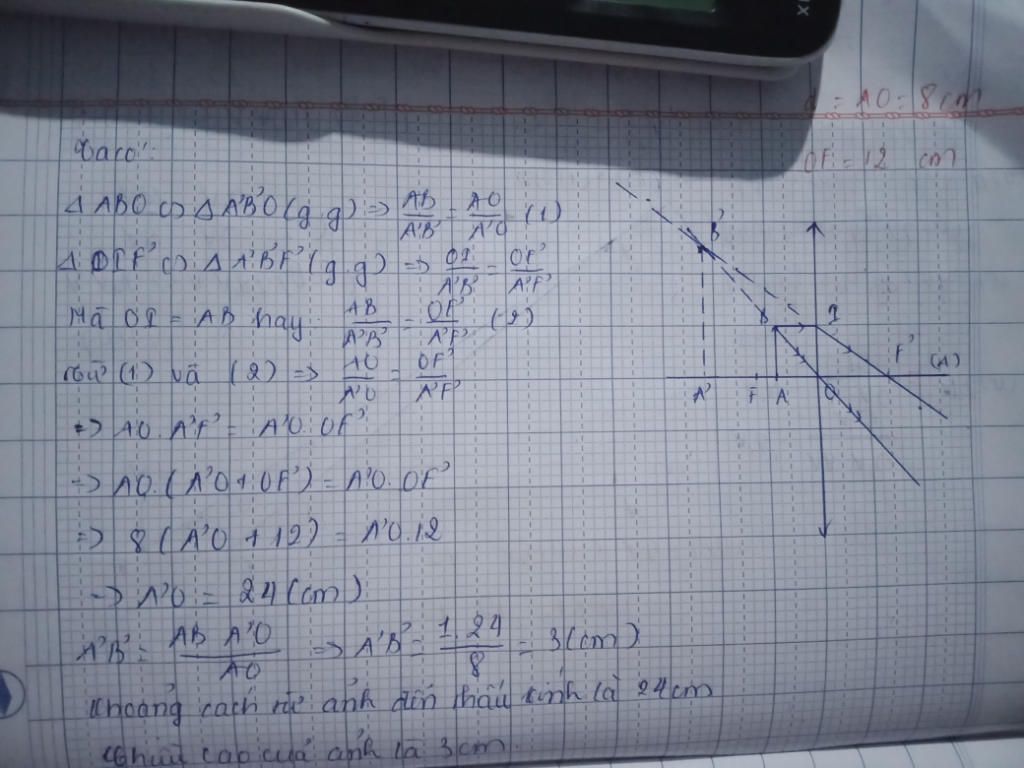 d = AO = 8cm
OF = 12 cm
Ta có:
Δ ABO ∽ Δ A'B'O (g.g) => AB/A'B' = AO/A'O (1)
Δ OIF' ∽ Δ A'B'F' (g.g) => OI/A'B' = OF'/A'F'
Mà OI = AB hay: AB/A'B' = OF'/A'F' (2)
Từ (1) và (2) => AO/A'O = OF'/A'F'
=> AO. A'F' = A'O. OF'
=> AO. (A'O + OF') = A'O. OF'
=> 8 (A'O + 12) = A'O.12
=> A'O = 24 (cm)
A'B' = AB A'O/AO => A'B' = 1.24/8 = 3 (cm)
Khoảng cách từ ảnh đến thấu kính là 24cm
Chiều cao của ảnh là 3cm.
B'
B
I
F'
(Δ)
A'
F
A
O